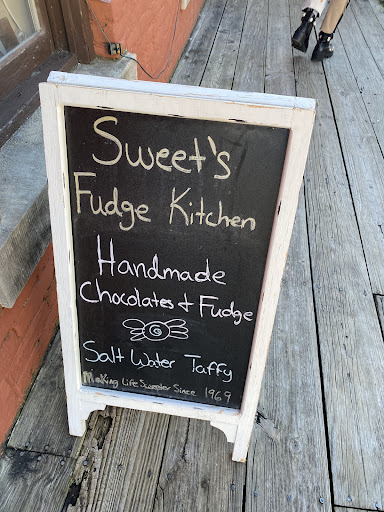 Sweet's
Fudge Kitchen
Handmade
Chocolates & Fudge
Salt Water Taffy
Making Life Sweeter Since 1969